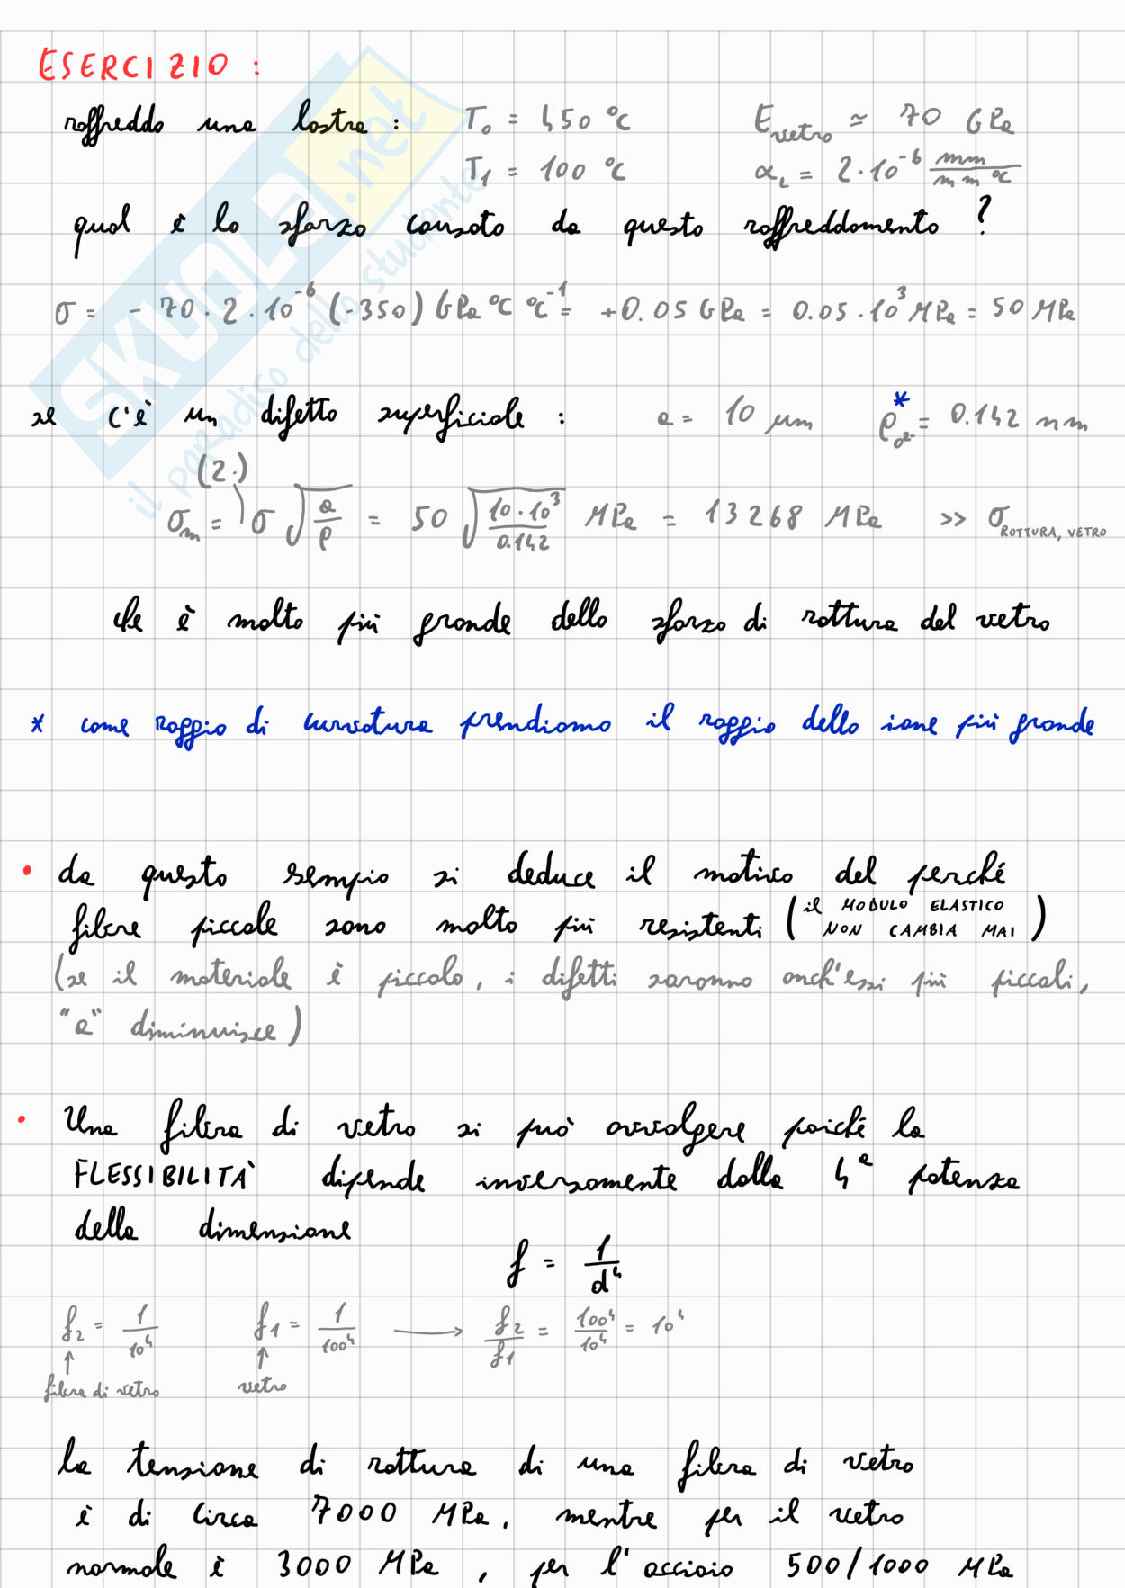 ESERCIZIO :
raffreddo una lastra : T₀ = 450 °C E_vetro ≈ 70 GPa
T₁ = 100 °C α_L = 2·10⁻⁶ mm/mm °C
qual è lo sforzo causato da questo raffreddamento ?
σ = - 70 · 2 · 10⁻⁶ (-350) GPa °C °C⁻¹ = +0.05 GPa = 0.05 · 10³ MPa = 50 MPa
se c'è un difetto superficiale : a = 10 μm ρ* = 0.142 nm
(2·)
σ_m = σ √(a/ρ) = 50 √(10·10³/0.142) MPa = 13268 MPa >> σ_ROTTURA, VETRO
che è molto più grande dello sforzo di rottura del vetro
* come raggio di curvatura prendiamo il raggio dello ione più grande
• da questo esempio si deduce il motivo del perché
fibre piccole sono molto più resistenti (il MODULO ELASTICO NON CAMBIA MAI)
(se il materiale è piccolo, i difetti saranno anch'essi più piccoli,
"a" diminuisce)
• Una fibra di vetro si può avvolgere poiché la
FLESSIBILITÀ dipende inversamente dalla 4ª potenza
della dimensione
f = 1/d⁴
f₂ = 1/10⁴ f₁ = 1/100⁴ → f₂/f₁ = 100⁴/10⁴ = 10⁴
↑ ↑
fibra di vetro vetro
la tensione di rottura di una fibra di vetro
è di circa 7000 MPa, mentre per il vetro
normale è 3000 MPa, per l'acciaio 500/1000 MPa
SKUOLA.net
il paradiso dello studente